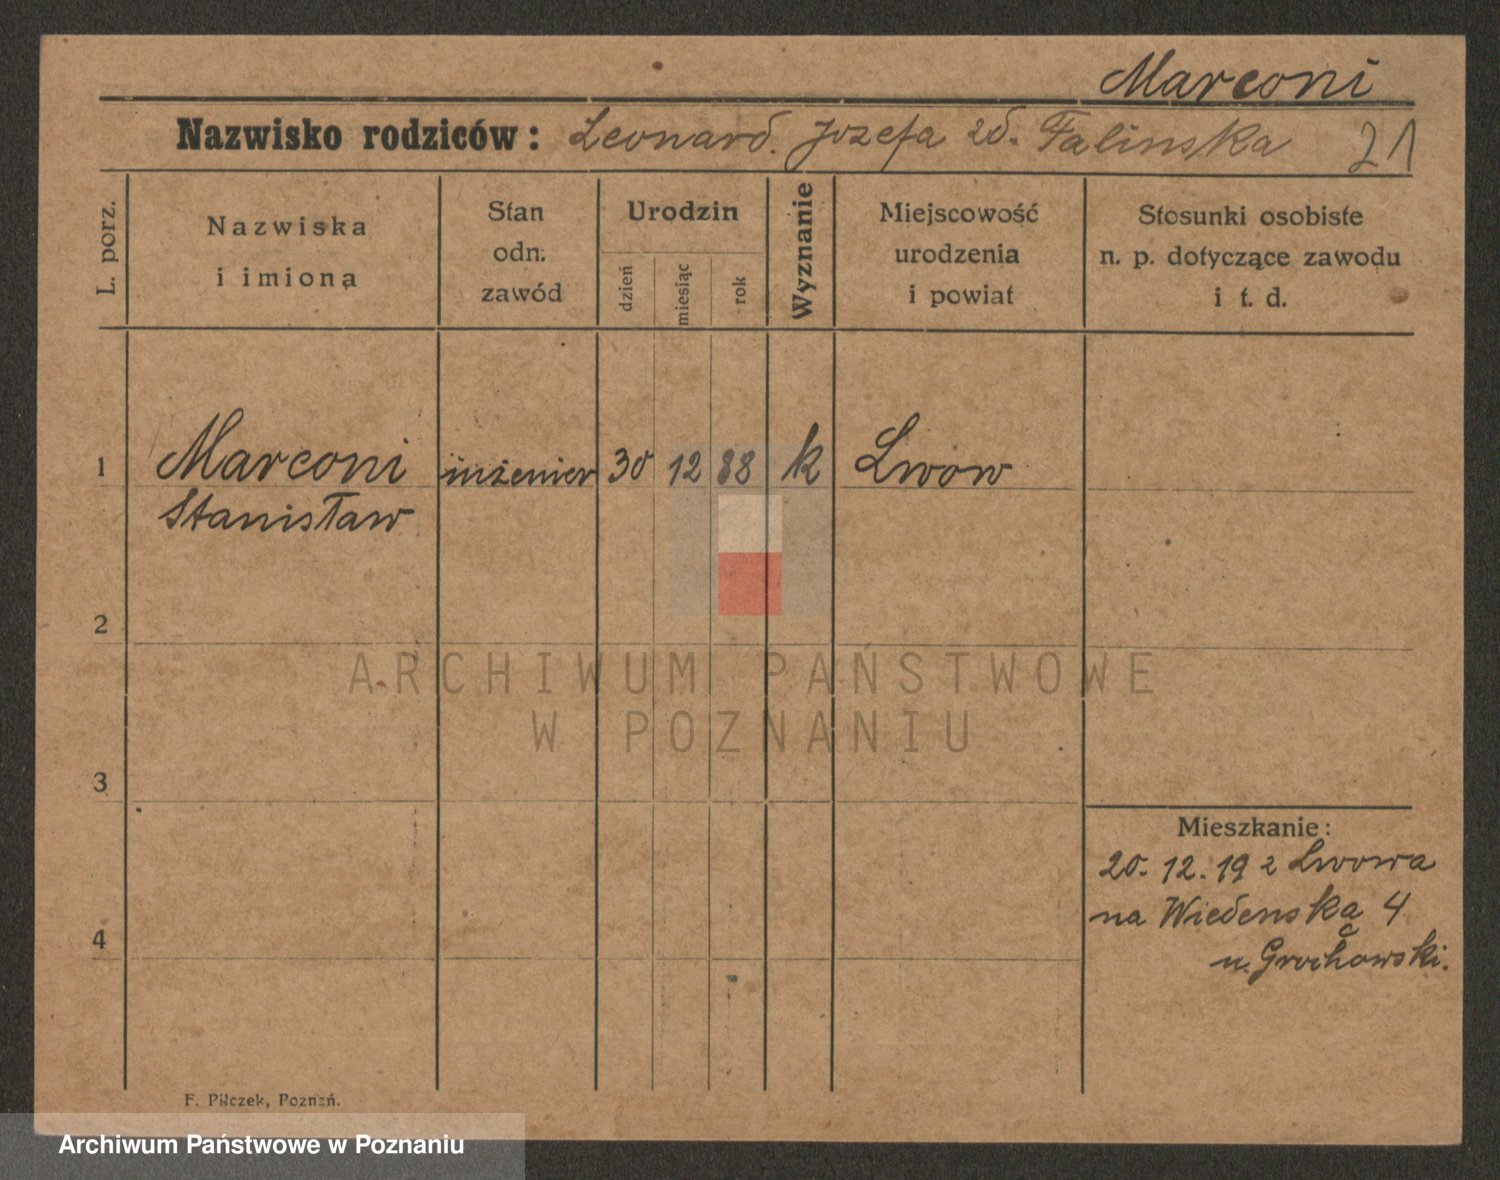 Marconi
Nazwisko rodziców: Leonard. Jozefa zd. Falinska 21
L. porz.
Nazwiska
i imiona
Stan
odn.
zawód
Urodzin
dzień
miesiąc
rok
Wyznanie
Miejscowość
urodzenia
i powiat
Stosunki osobiste
n. p. dotyczące zawodu
i t. d.
1 Marconi inżenier 30 12 88 k Lwow
Stanisław
2
ARCHIWUM PAŃSTWOWE
W POZNANIU
3
Mieszkanie:
20. 12. 19 z Lwowa
na Wiedenską 4
u. Grochowski.
4
F. Pilczek, Poznań.
Archiwum Państwowe w Poznaniu